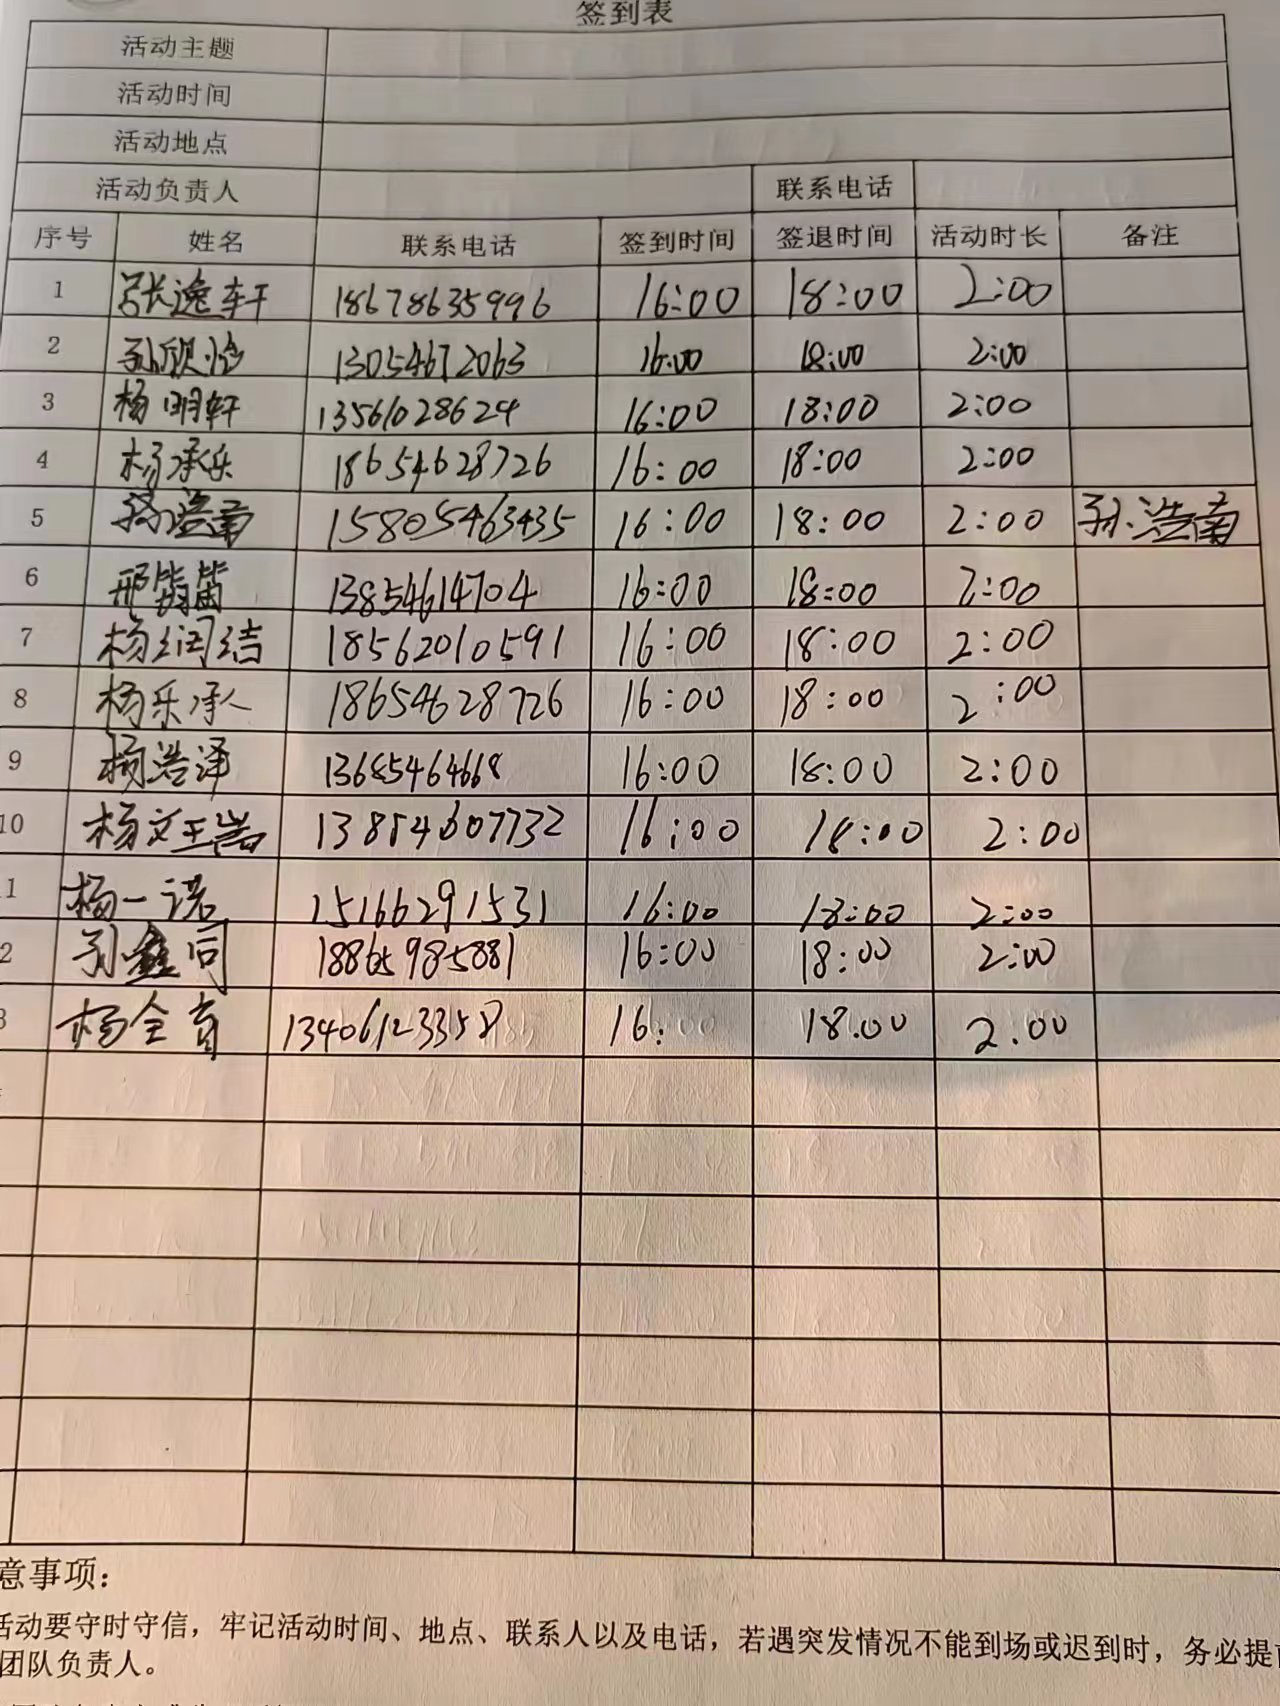 签到表
活动主题
活动时间
活动地点
活动负责人 联系电话
序号 姓名 联系电话 签到时间 签退时间 活动时长 备注
1 张逸轩 18678635996 16:00 18:00 2:00
2 孙欣怡 13054672063 16:00 18:00 2:00
3 杨明轩 13561028624 16:00 18:00 2:00
4 杨承乐 18654628726 16:00 18:00 2:00
5 孙浩南 15805463435 16:00 18:00 2:00 孙浩南
6 邢 13854614704 16:00 18:00 2:00
7 杨润洁 18562010591 16:00 18:00 2:00
8 杨乐承 18654628726 16:00 18:00 2:00
9 杨浩泽 13685464668 16:00 18:00 2:00
10 杨文 13854607732 16:00 18:00 2:00
1 杨一诺 15166291531 16:00 18:00 2:00
2 孙鑫同 18865985881 16:00 18:00 2:00
3 杨全育 13406123358 16: 18.00 2.00
意事项：
活动要守时守信，牢记活动时间、地点、联系人以及电话，若遇突发情况不能到场或迟到时，务必提前
团队负责人。